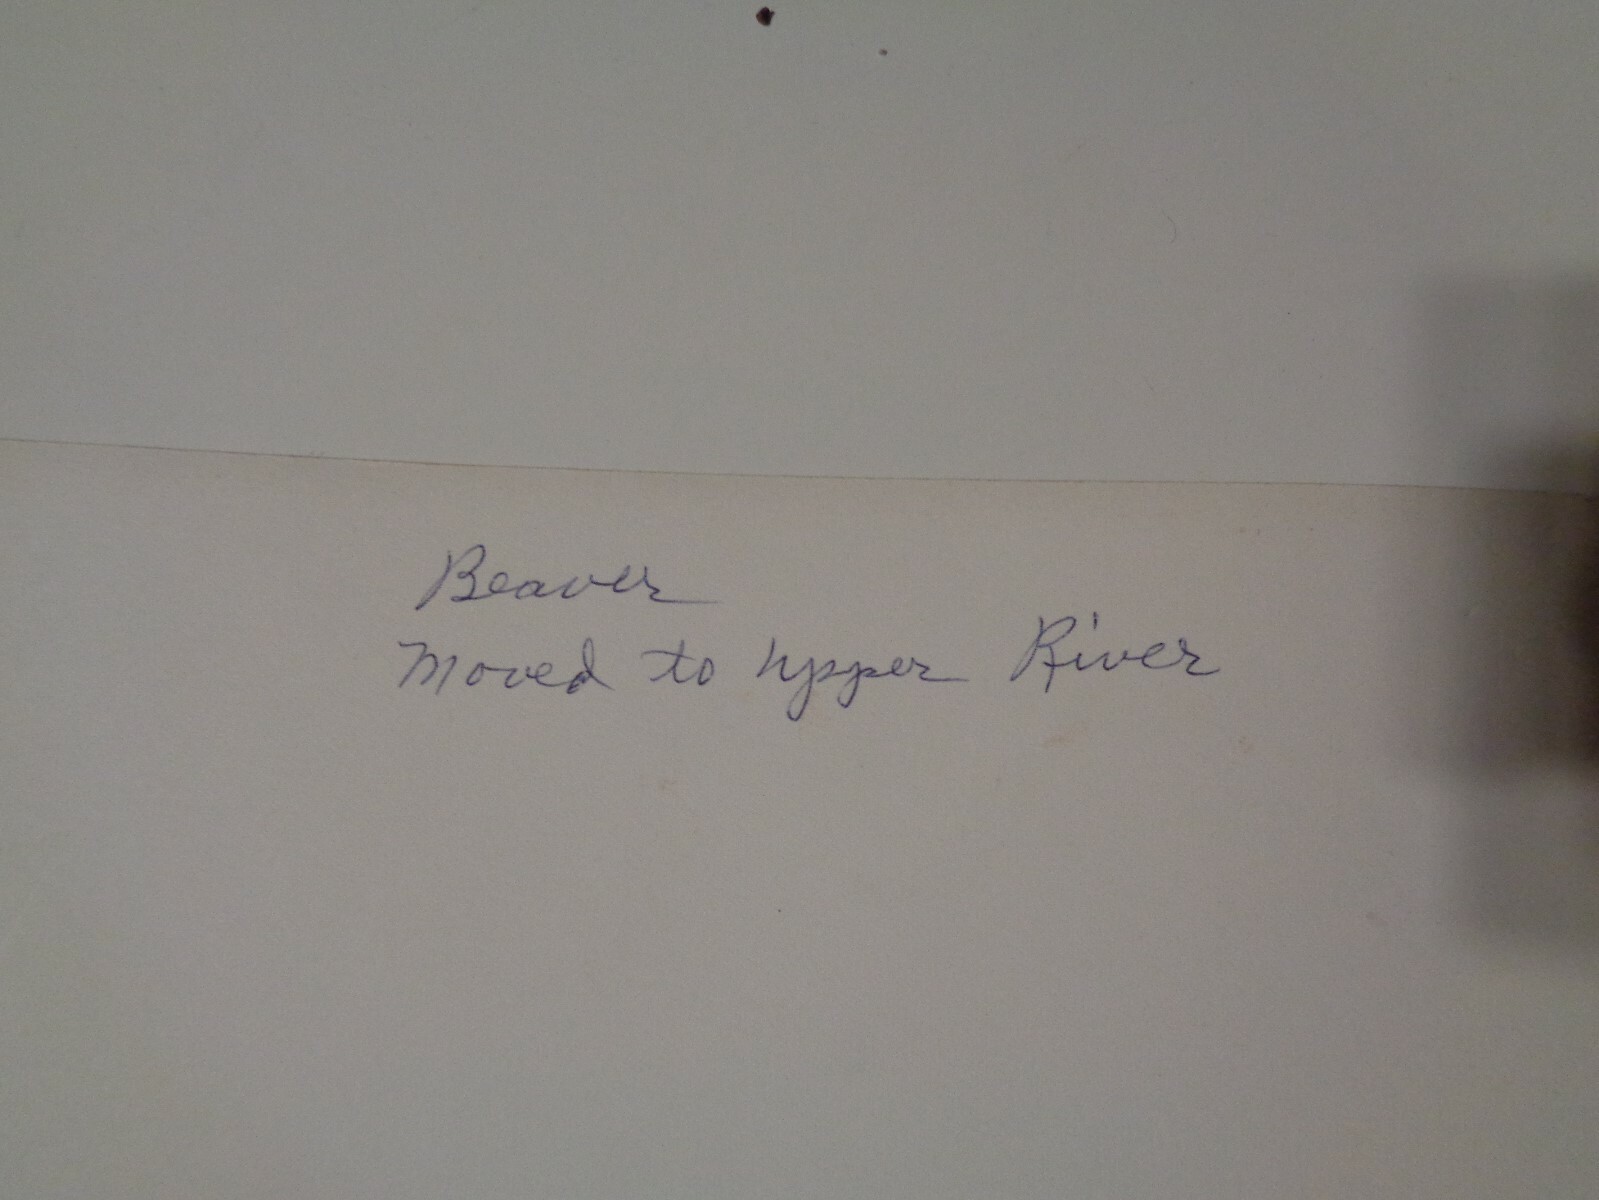 Beaver
Moved to Upper River